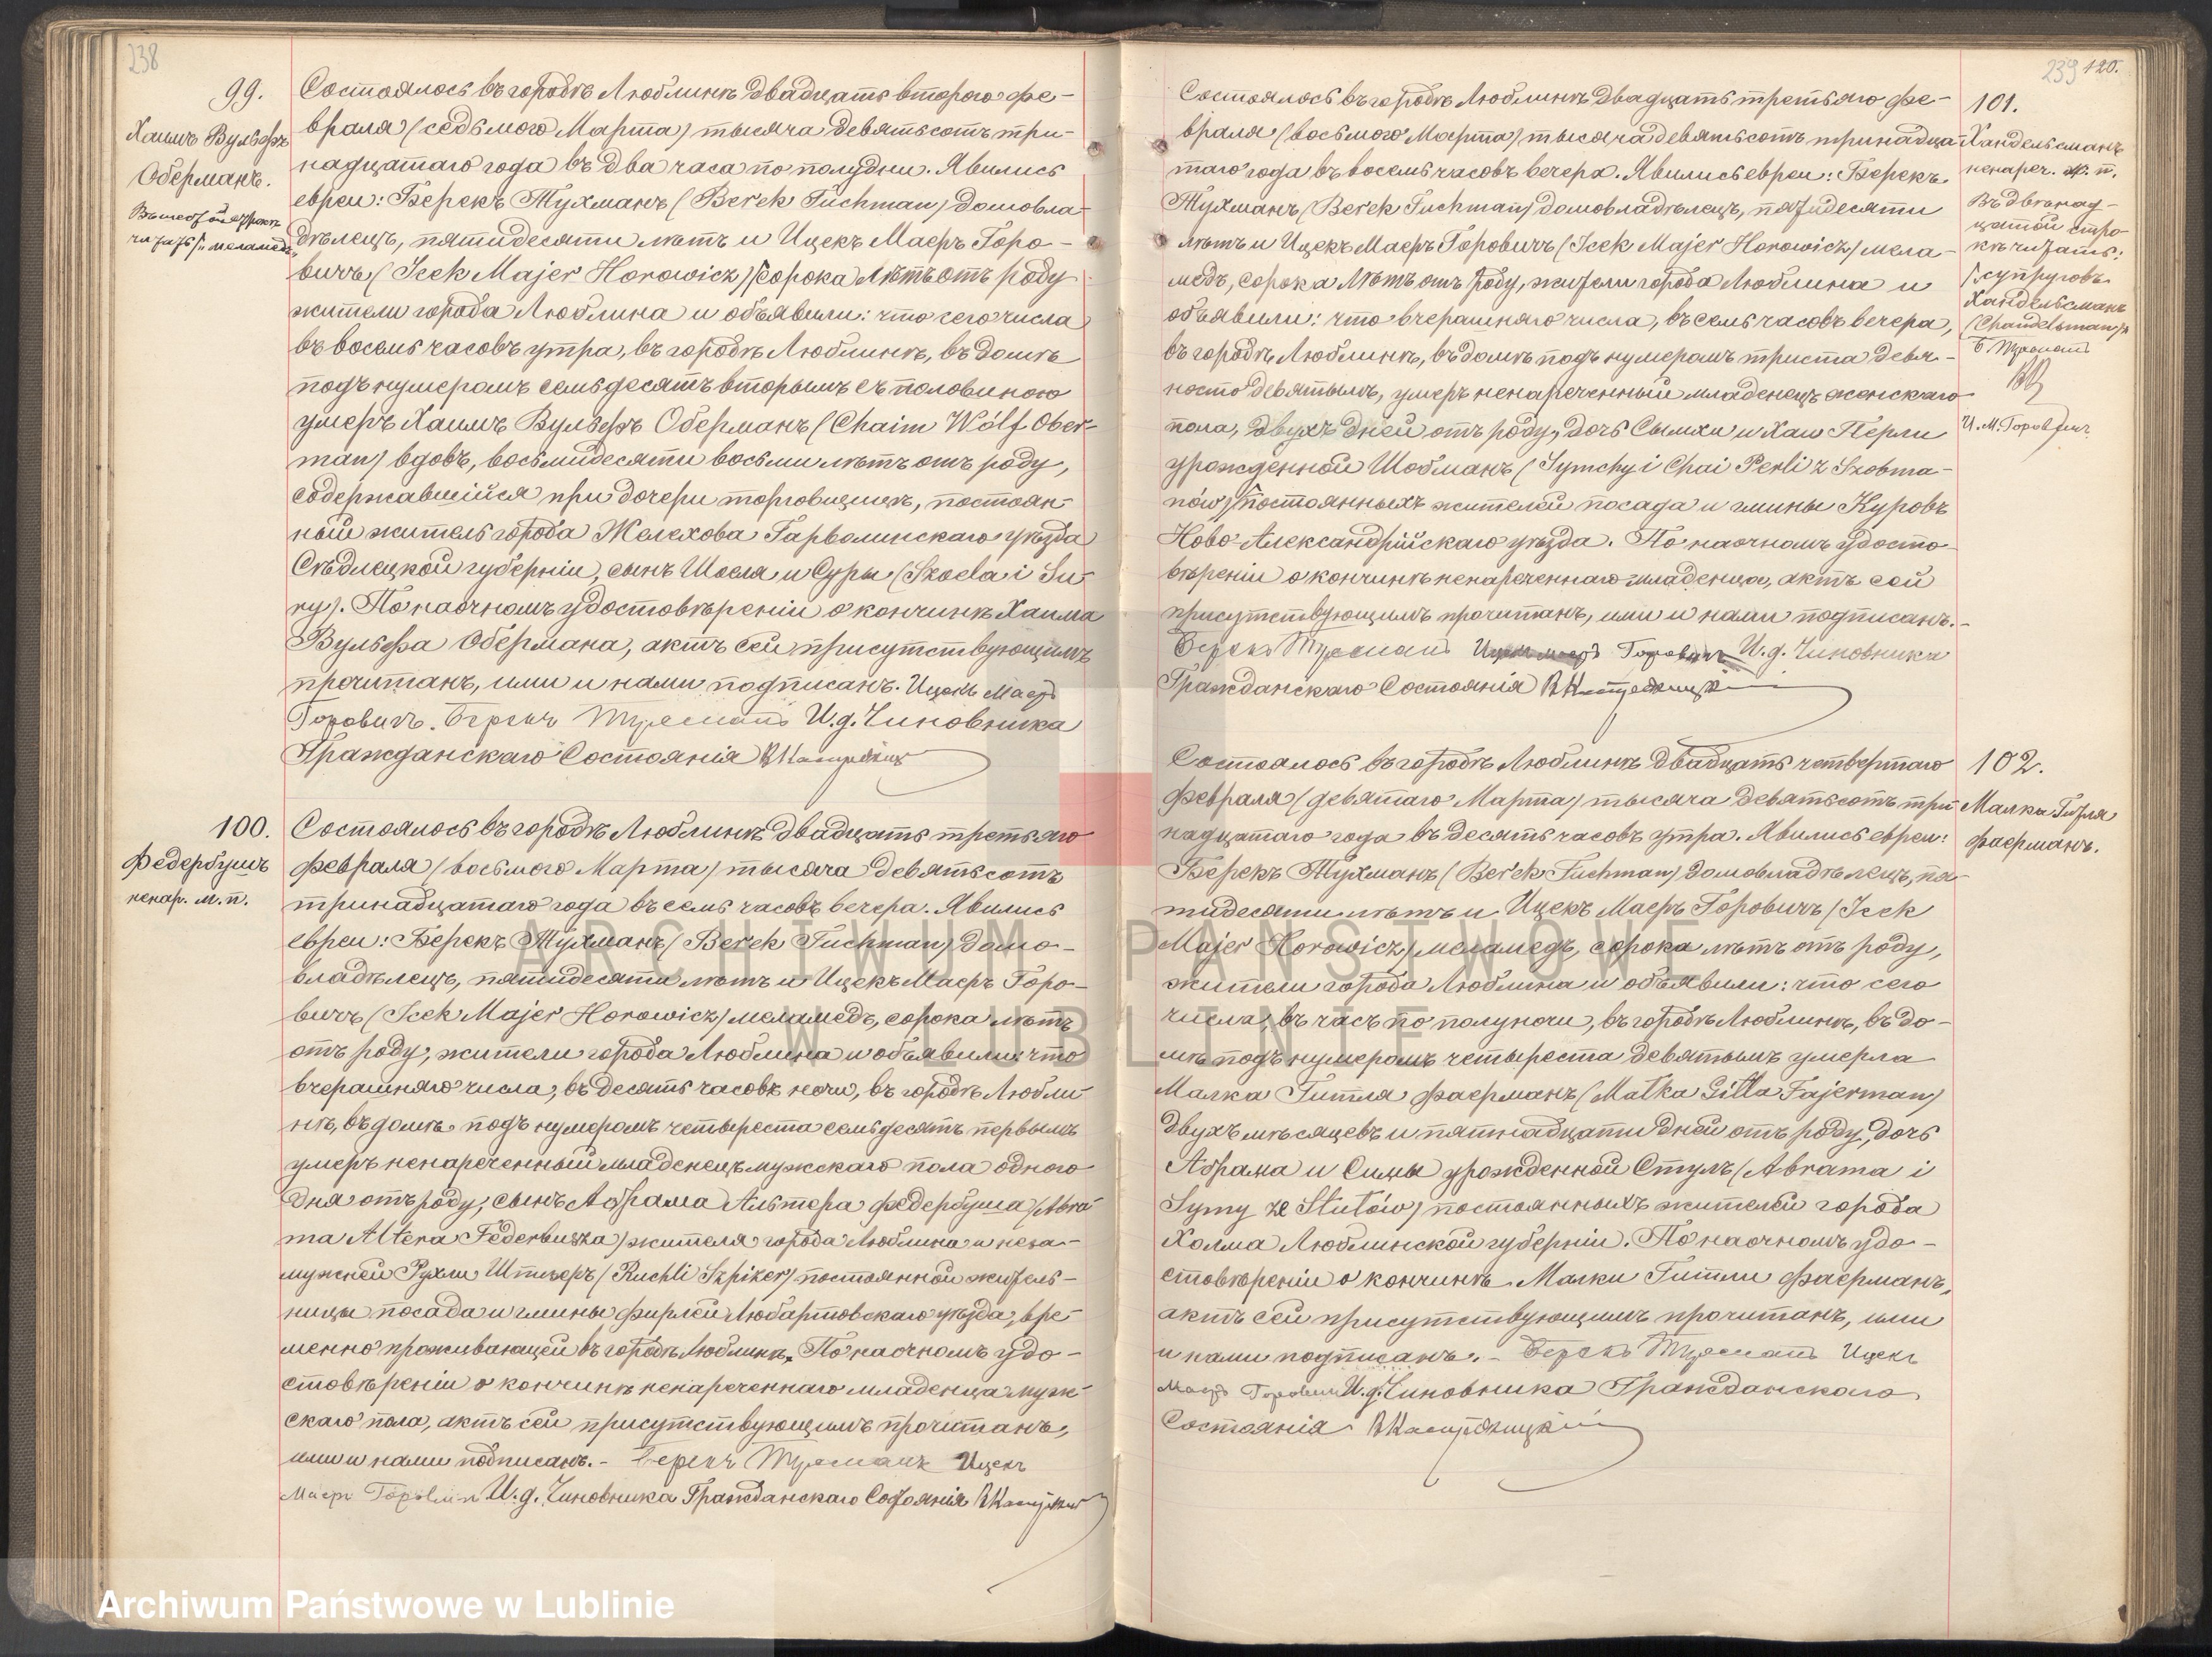 238
99.
Хаимъ Вульфъ
Оберманъ.
Въ шестой строкѣ
читать "меламедъ"
Состоялось въ городѣ Люблинѣ двадцать второго фе-
враля (седьмого Марта) тысяча девятьсотъ три-
надцатаго года въ два часа по полудни. Явились
евреи: Берекъ Тухманъ (Berek Tuchman) домовла-
дѣлецъ, пятидесяти лѣтъ и Ицекъ Маеръ Горо-
вичъ (Icek Majer Horowicz) сорока лѣтъ отъ роду
жители города Люблина и объявили: что сего числа
въ восемь часовъ утра, въ городѣ Люблинѣ, въ домѣ
подъ нумеромъ семьдесятъ вторымъ съ половиною
умеръ Хаимъ Вульфъ Оберманъ (Chaim Wólf Ober-
man) вдовъ, восьмидесяти восьми лѣтъ отъ роду,
содержавшійся при дочери торговщицѣ, постоян-
ный житель города Желехова Гарволинскаго уѣзда
Сѣдлецкой губерніи, сынъ Шоеля и Суры (Szoela i Su-
ry). По наочномъ удостовѣреніи о кончинѣ Хаима
Вульфа Обермана, актъ сей присутствующимъ
прочитанъ, ими и нами подписанъ. Ицекъ Маеръ
Горовичъ. Берекъ Тухманъ И.д. Чиновника
Гражданскаго Состоянія
100.
Федербушъ
ненар. м. п.
Состоялось въ городѣ Люблинѣ двадцать третьяго
февраля (восьмого Марта) тысяча девятьсотъ
тринадцатаго года въ семь часовъ вечера. Явились
евреи: Берекъ Тухманъ (Berek Tuchman) домо-
владѣлецъ, пятидесяти лѣтъ и Ицекъ Маеръ Горо-
вичъ (Icek Majer Horowicz) меламедъ, сорока лѣтъ
отъ роду, жители города Люблина и объявили: что
вчерашняго числа, въ десять часовъ ночи, въ городѣ Любли-
нѣ, въ домѣ подъ нумеромъ четыреста семьдесятъ первымъ
умеръ ненареченный младенецъ мужскаго пола одного
дня отъ роду, сынъ Абрама Альтера Федербуша (Abra-
ma Altera Federbusza) жителя города Люблина и неза-
мужней Рухли Шпизеръ (Ruchli Szpizer) постоянной житель-
ницы посада и гмины Фирлей Любартовскаго уѣзда, вре-
менно проживающей въ городѣ Люблинѣ. По наочномъ удо-
стовѣреніи о кончинѣ ненареченнаго младенца муж-
скаго пола, актъ сей присутствующимъ прочитанъ,
ими и нами подписанъ. - Берекъ Тухманъ Ицекъ
Маеръ Горовичъ И.д. Чиновника Гражданскаго Состоянія
239 120.
Состоялось въ городѣ Люблинѣ двадцать третьяго фе-
враля (восьмого Марта) тысяча девятьсотъ тринадца-
таго года въ восемь часовъ вечера. Явились евреи: Берекъ
Тухманъ (Berek Tuchman) домовладѣлецъ, пятидесяти
лѣтъ и Ицекъ Маеръ Горовичъ (Icek Majer Horowicz) мела-
медъ, сорока лѣтъ отъ роду, жители города Люблина и
объявили: что вчерашняго числа, въ семь часовъ вечера,
въ городѣ Люблинѣ, въ домѣ подъ нумеромъ триста девя-
носто девятымъ, умеръ ненареченный младенецъ женскаго
пола, двухъ дней отъ роду, дочь Сымхи и Хаи Перли
урожденной Шобманъ (Symchy i Chai Perli z Szobma-
nów) постоянныхъ жителей посада и гмины Куровъ
Ново-Александрійскаго уѣзда. По наочномъ удосто-
вѣреніи о кончинѣ ненареченнаго младенца, актъ сей
присутствующимъ прочитанъ, ими и нами подписанъ. -
Берекъ Тухманъ Ицекъ Маеръ Горовичъ И.д. Чиновника
Гражданскаго Состоянія
101.
Хандельсманъ
ненареч. ж. п.
Въ двѣнад-
цатой стро-
кѣ читать:
"супруговъ
Хандельсманъ
(Chandelsman)"
Б. Тухманъ
И. М. Горовичъ
Состоялось въ городѣ Люблинѣ двадцать четвертаго
февраля (девятаго Марта) тысяча девятьсотъ три-
надцатаго года въ десять часовъ утра. Явились евреи:
Берекъ Тухманъ (Berek Tuchman) домовладѣлецъ, пя-
тидесяти лѣтъ и Ицекъ Маеръ Горовичъ (Icek
Majer Horowicz) меламедъ, сорока лѣтъ отъ роду,
жители города Люблина и объявили: что сего
числа, въ часъ по полуночи, въ городѣ Люблинѣ, въ до-
мѣ подъ нумеромъ четыреста девятымъ умерла
Малка Гитля Фаерманъ (Małka Gitla Fajerman)
двухъ мѣсяцевъ и пятнадцати дней отъ роду, дочь
Абрама и Симы урожденной Стулъ (Abrama i
Symy ze Stułów) постоянныхъ жителей города
Холма Люблинской губерніи. По наочномъ удо-
стовѣреніи о кончинѣ Малки Гитли Фаерманъ,
актъ сей присутствующимъ прочитанъ, ими
и нами подписанъ. - Берекъ Тухманъ Ицекъ
Маеръ Горовичъ И.д. Чиновника Гражданскаго
Состоянія
102.
Малка Гитля
Фаерманъ.
ARCHIWUM PAŃSTWOWE
W LUBLINIE
Archiwum Państwowe w Lublinie